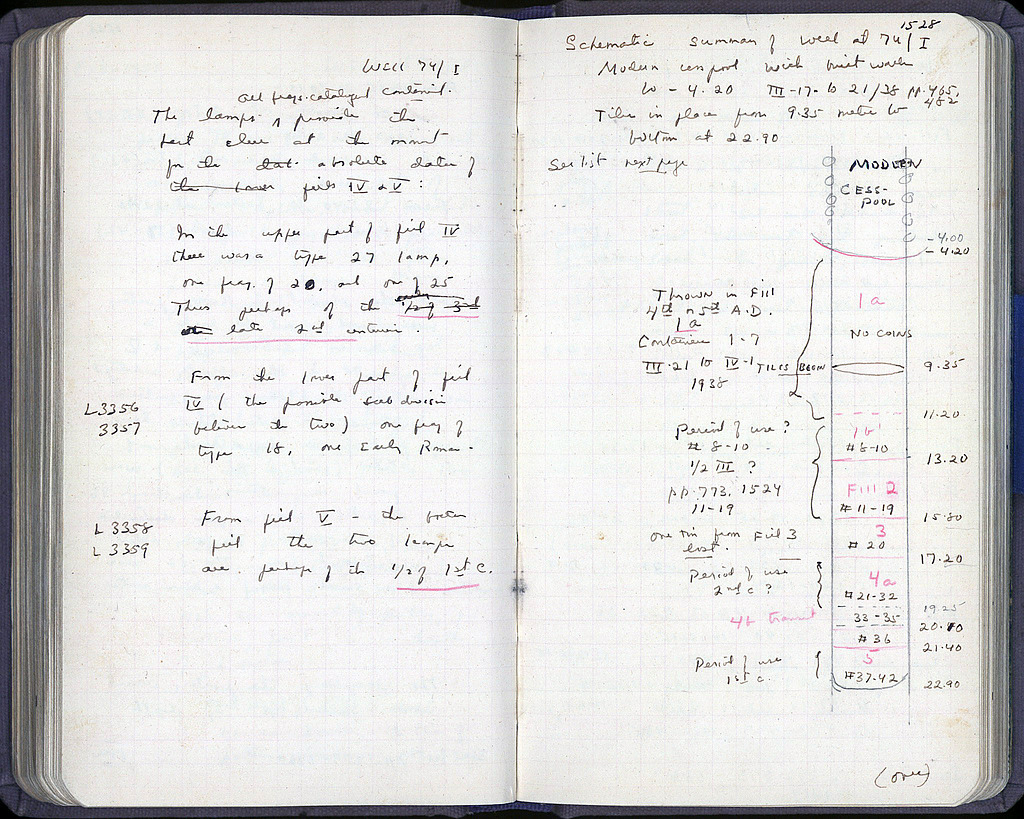 WELL 74/I
all frags. catalogued contents.
The lamps provide the
best clue at the moment
for the dat absolute dates of
the lower fills IV & V :
In the upper part of fill IV
there was a type 27 lamp,
one frag. of 20, and one of 25
Thus perhaps of the early 1/2 of 3rd
late 2nd centuries.
From the lower part of fill
L3356 IV (the possible subdivision
3357 between the two) one frag of
type 18, one Early Roman.
L 3358 From fill V – the bottom
L 3359 fill the two lamps
are perhaps of the 1/2 of 1st C.
1528
Schematic summary of well at 74/I
Modern cesspool with built walls
to – 4.20 III-17- to 21/38 pp. 465,
482
Tiles in place from 9.35 metres to
bottom at 22.90
See list next page
MODERN
CESS-
POOL
-4.00
-4.20
Thrown in Fill
4th or 5th A.D.
1a
Containers 1-7
III-21 to IV-1
1938
1a
NO COINS
TILES BEGIN
9.35
11.20
Period of use?
# 8-10
1/2 III ?
pp. 773, 1524
11-19
1b
# 8-10
13.20
Fill 2
# 11-19
15.80
one tin from Fill 3
lost.
3
# 20
17.20
Period of use
2nd c ?
4a
# 21-32
19.25
4b transit
33-35
20.40
# 36
21.40
Period of use
1st c.
5
# 37-42
22.90
(over)